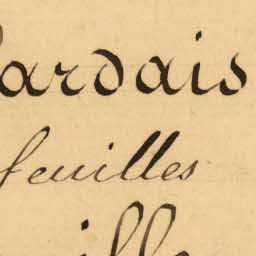 ardais
feuilles